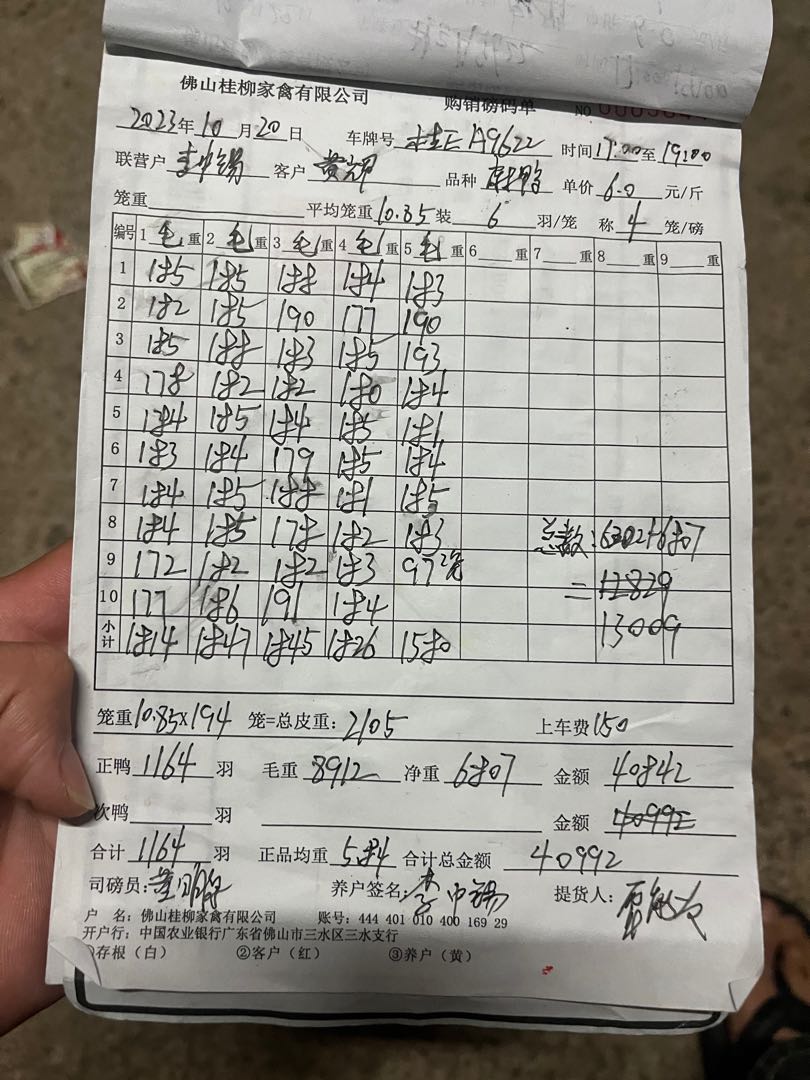 佛山桂柳家禽有限公司 购销磅码单 NO
2023年10月20日 车牌号 桂E A9622 时间17:00至19:00
联营户 李中锡 客户 黄辉 品种 单价 6.0 元/斤
笼重 平均笼重10.85装 6 羽/笼 称 4 笼/磅
编号 1 毛 重 2 毛 重 3 毛 重 4 毛 重 5 毛 重 6 重 7 重 8 重 9 重
1 185 185 188 184 183
2 182 185 190 177 190
3 185 188 183 185 193
4 178 182 182 180 184
5 184 185 184 185 181
6 183 184 179 185 184
7 184 185 188 181 185
8 184 185 178 182 183 总数:6202+6807
9 172 182 182 183 97 2笼 =12829
10 177 186 191 184 13009
小计 1814 1847 1845 1826 1580
笼重10.85×194 笼=总皮重:2105 上车费150
正鸭 1164 羽 毛重 8912 净重 6807 金额 40842
次鸭 羽 金额 40992
合计 1164 羽 正品均重 5.84 合计总金额 40992
司磅员: 养户签名:李中锡 提货人:
户 名:佛山桂柳家禽有限公司 账号:444 401 010 400 169 29
开户行:中国农业银行广东省佛山市三水区三水支行
①存根(白) ②客户(红) ③养户(黄)